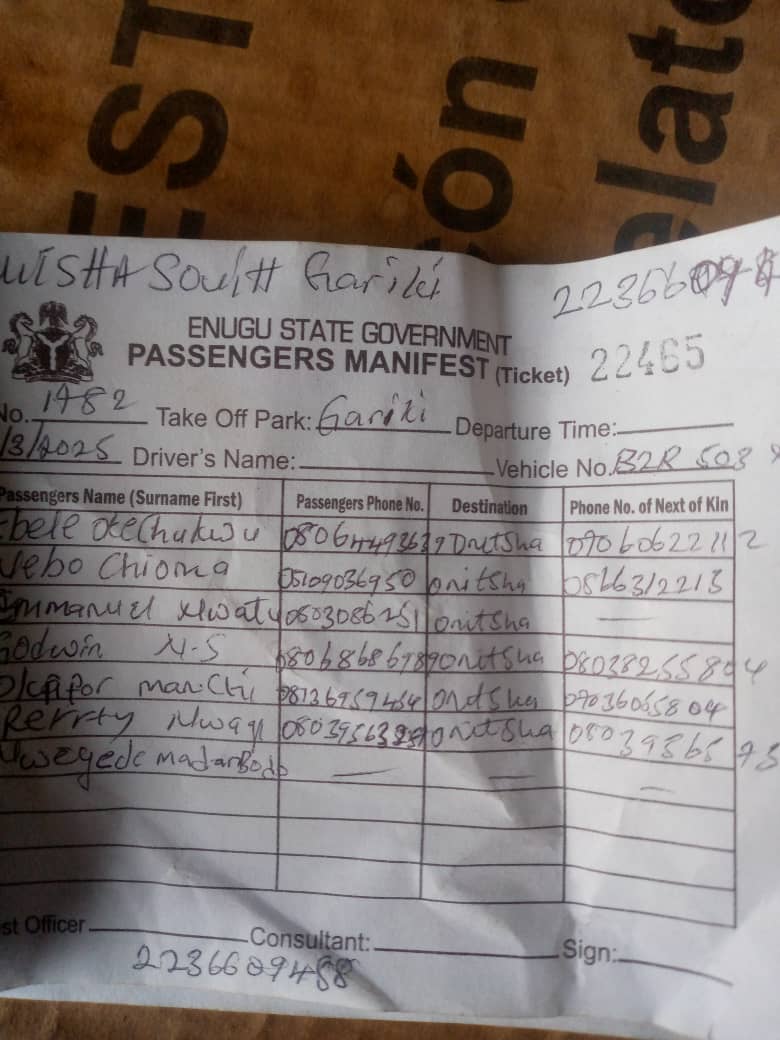 EST
ón
elato
WISHA South Gariki
22366094
ENUGU STATE GOVERNMENT
PASSENGERS MANIFEST (Ticket) 22465
No. 1482 Take Off Park: Gariki Departure Time:
/3/2025 Driver's Name: Vehicle No. B2R 503
Passengers Name (Surname First) Passengers Phone No. Destination Phone No. of Next of Kin
Ebele Otechukwu 08064493637 Onitsha 07060622112
Nebo Chioma 08109036950 onitsha 0816312213
Emmanuel Nwatu 0803086251 onitsha —
Godwin N-S 08068686989 onitsha 08038255804
Okafor manchi 08136959454 onitsha 07036065804
Perrty Nwag onitsha 0803936573
— — —
st Officer Consultant: Sign:
2236609488